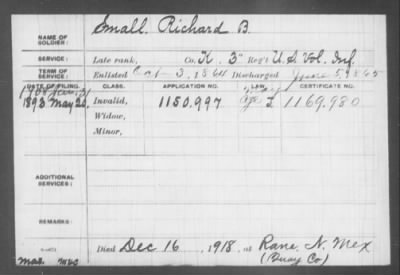 Small, Richard B.
NAME OF SOLDIER:
SERVICE: Late rank, Co. K. 3" Reg't U.S. Vol. Inf.
TERM OF SERVICE: Enlisted Oct 3, 1864 Discharged June 5, 1865
DATE OF FILING. CLASS. APPLICATION NO. LAW. CERTIFICATE NO.
1893 May 20, Invalid, 1150.997 1169.980
Widow,
Minor,
ADDITIONAL SERVICES:
REMARKS:
Died Dec 16, 1918, at Rane, N. Mex
(Quay Co)